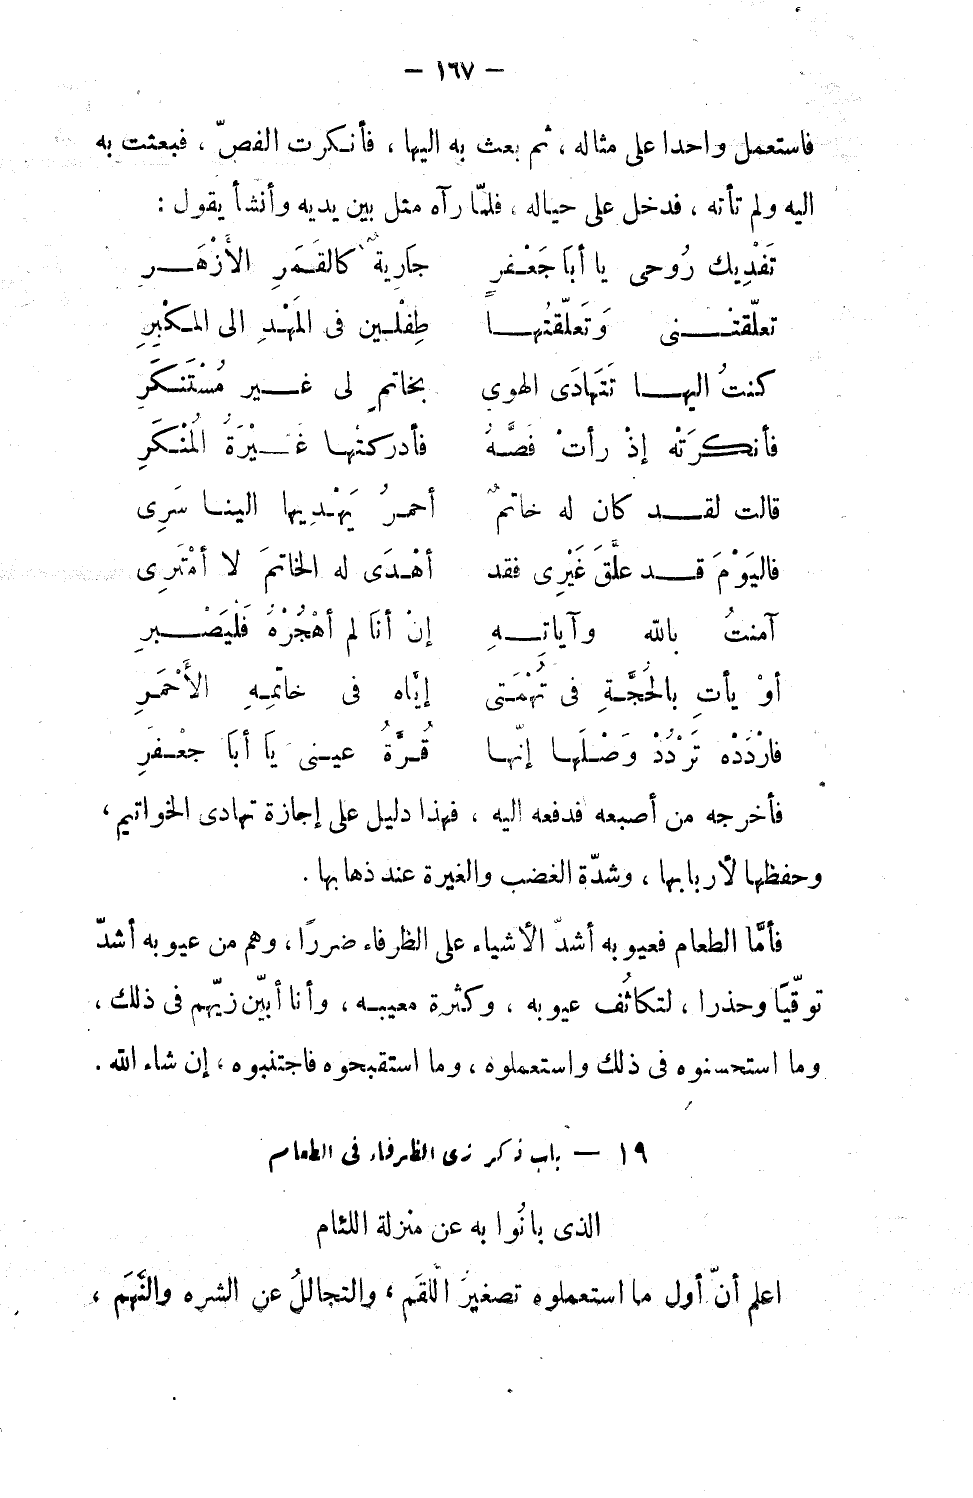 — ١٦٧ —
فاستعمل واحدا على مثاله ، ثم بعث به اليها ، فأنكرت الفصّ ، فبعثت به
اليه ولم تأته ، فدخل على حياله ، فلمّا رآه مثل بين يديه وأنشأ يقول :
تَفْدِيك رُوحى يا أبَا جَعْفرٍ جَارِيةٌ كالقَمَرِ الأَزْهَرِ
تعلّقتْنى وَتَعلّقتُها طِفْلين فى المَهْدِ الى المكْبِرِ
كنتُ اليها نَتَهادَى الهوى بخاتمٍ لى غير مُسْتَنكَرِ
فأنكرَتْه إذْ رأتْ فَصَّهُ فأدركتْها غَيْرَةُ المُنْكَرِ
قالت لقد كان له خاتمٌ أحمرُ يَهْدِيها الينا سَرِى
فاليَوْمَ قد علَّقَ غَيْرِى فقد أهْدَى له الخاتمَ لا أمْتَرِى
آمنتُ بالله وآياتِهِ إنْ أنَا لم أهْجُرْهُ فَلْيَصْبرِ
أوْ يأتِ بالحُجَّةِ فى تُهْمَتى إيَّاه فى خاتمِهِ الأَحْمَرِ
فارْدُدْه تَرْدُدْ وَصْلَها إنّها قُرَّةُ عينى يَا أبَا جعْفرِ
فأخرجه من أصبعه فدفعه اليه ، فهذا دليل على إجازة تهادى الخواتيم ،
وحفظها لأربابها ، وشدّة الغضب والغيرة عند ذهابها .
فأمَّا الطعام فعيوبه أشدّ الأشياء على الظرفاء ضررًا ، وهم من عيوبه أشدّ
توقّيًا وحذرا ، لتكاثُف عيوبه ، وكثرة معيبه ، وأنا أبيّن زيّهم فى ذلك ،
وما استحسنوه فى ذلك واستعملوه ، وما استقبحوه فاجتنبوه ؛ إن شاء الله .
١٩ — باب ذكر زى الظرفاء فى الطعام
الذى بانُوا به عن منزلة اللئام
اعلم أنّ أول ما استعملوه تصغيرُ اللُّقَم ؛ والتجاللُ عن الشره والنَّهَم ،